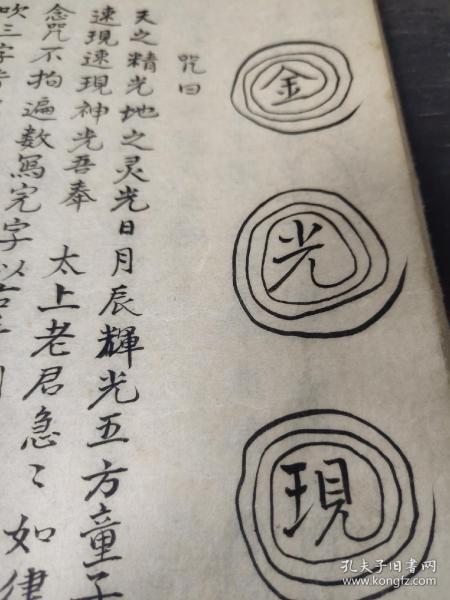 金
光
現
咒曰
天之精光地之灵光日月辰輝光五方童子
速現速現神光吾奉
太上老君急〻如律
念咒不拘遍数寫完字以
吹三字
孔夫子旧书网
www.kongfz.com